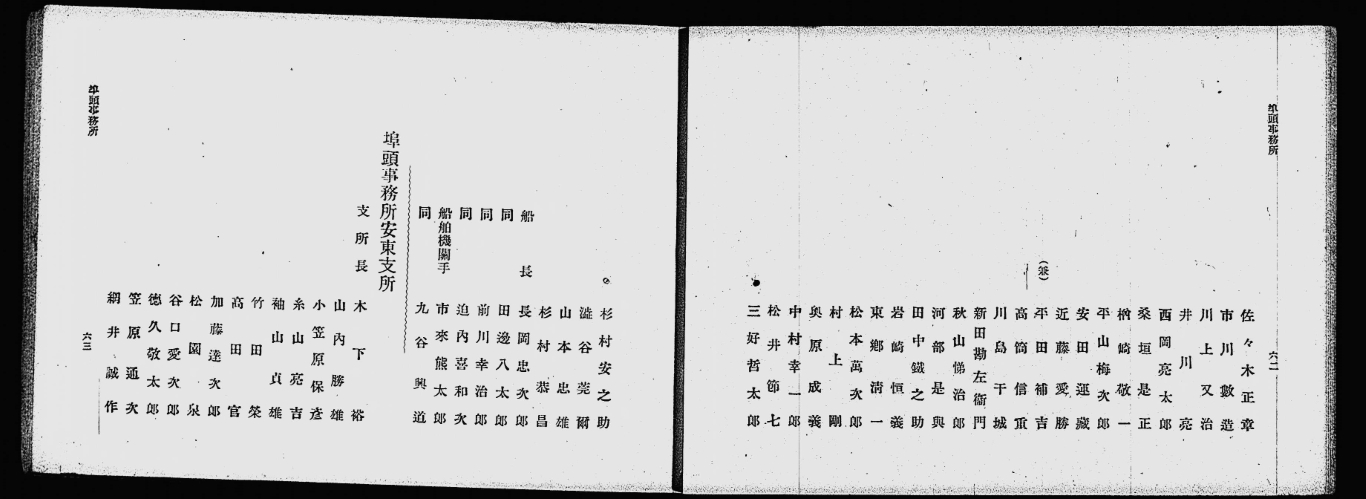 埠頭事務所
六二
佐々木正章
市川數造
川上又治
井川亮
西岡亮太郎
桑垣是正
楢崎敬一
平山梅次郎
安田運藏
近藤愛勝
平田補吉
(兼)
高筒信重
川島干城
新田勘左衞門
秋山悌治郎
河部是與
田中鐵之助
岩崎恒義
東郷淸一
松本萬次郎
村上剛
奥原成義
中村幸一郎
松井節七
三好哲太郎
杉村安之助
澁谷莞爾
山本忠雄
杉村恭昌
船長 長岡忠次郎
同 田邊八太郎
同 前川幸治郎
同 迫內喜和次
船舶機關手 市來熊太郎
同 九谷興道
埠頭事務所安東支所
支所長 木下裕
山內勝雄
小笠原保彥
糸山亮吉
袖山貞雄
竹田榮
高田官
加藤達次郎
松園泉
谷口愛次郎
德久敬太郎
笠原通次
網井誠作
埠頭事務所
六三